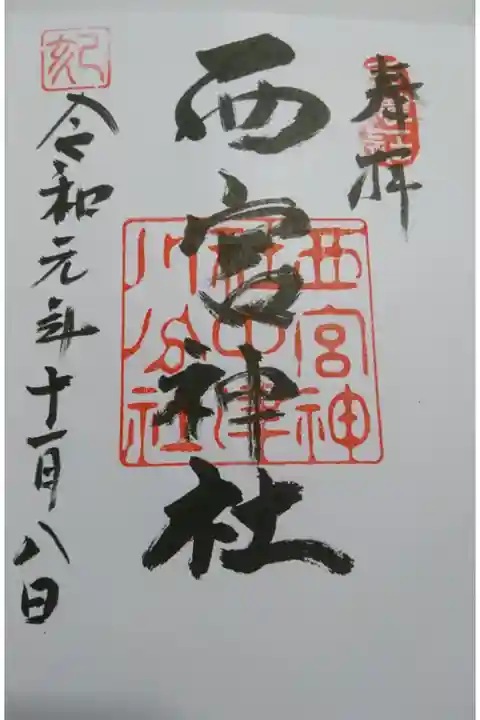 奉拝
西宮神社
西宮神
川分社
令和元年十一月八日